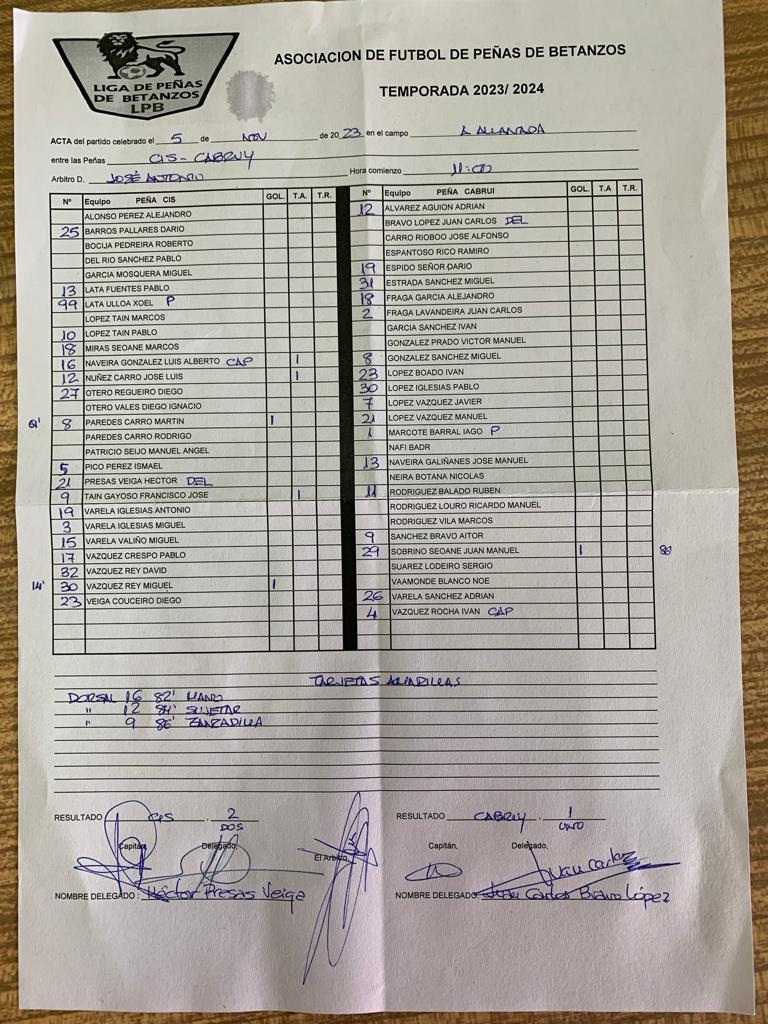 LIGA DE PEÑAS
DE BETANZOS
LPB
ASOCIACION DE FUTBOL DE PEÑAS DE BETANZOS
TEMPORADA 2023/ 2024
ACTA del partido celebrado el 5 de NOV de 2023 en el campo A ALLANADA
entre las Peñas CIS - CABRUY
Arbitro D. JOSÉ ANTONIO Hora comienzo 11:00
Nº Equipo PEÑA CIS GOL. T.A. T.R.
ALONSO PEREZ ALEJANDRO
25 BARROS PALLARES DARIO
BOCIJA PEDREIRA ROBERTO
DEL RIO SANCHEZ PABLO
GARCIA MOSQUERA MIGUEL
13 LATA FUENTES PABLO
99 LATA ULLOA XOEL P
LOPEZ TAIN MARCOS
10 LOPEZ TAIN PABLO
18 MIRAS SEOANE MARCOS
16 NAVEIRA GONZALEZ LUIS ALBERTO CAP 1
12 NUÑEZ CARRO JOSE LUIS 1
27 OTERO REGUEIRO DIEGO
OTERO VALES DIEGO IGNACIO
61' 8 PAREDES CARRO MARTIN 1
PAREDES CARRO RODRIGO
PATRICIO SEIJO MANUEL ANGEL
5 PICO PEREZ ISMAEL
21 PRESAS VEIGA HECTOR DEL
9 TAIN GAYOSO FRANCISCO JOSE 1
19 VARELA IGLESIAS ANTONIO
3 VARELA IGLESIAS MIGUEL
15 VARELA VALIÑO MIGUEL
17 VAZQUEZ CRESPO PABLO
32 VAZQUEZ REY DAVID
14' 30 VAZQUEZ REY MIGUEL 1
23 VEIGA COUCEIRO DIEGO
Nº Equipo PEÑA CABRUI GOL. T.A T.R.
12 ALVAREZ AGUION ADRIAN
BRAVO LOPEZ JUAN CARLOS DEL
CARRO RIOBOO JOSE ALFONSO
ESPANTOSO RICO RAMIRO
19 ESPIDO SEÑOR DARIO
31 ESTRADA SANCHEZ MIGUEL
18 FRAGA GARCIA ALEJANDRO
2 FRAGA LAVANDEIRA JUAN CARLOS
GARCIA SANCHEZ IVAN
GONZALEZ PRADO VICTOR MANUEL
8 GONZALEZ SANCHEZ MIGUEL
23 LOPEZ BOADO IVAN
30 LOPEZ IGLESIAS PABLO
7 LOPEZ VAZQUEZ JAVIER
21 LOPEZ VAZQUEZ MANUEL
1 MARCOTE BARRAL IAGO P
NAFI BADR
13 NAVEIRA GALIÑANES JOSE MANUEL
NEIRA BOTANA NICOLAS
11 RODRIGUEZ BALADO RUBEN
RODRIGUEZ LOURO RICARDO MANUEL
RODRIGUEZ VILA MARCOS
9 SANCHEZ BRAVO AITOR
29 SOBRINO SEOANE JUAN MANUEL 1 86'
SUAREZ LODEIRO SERGIO
VAAMONDE BLANCO NOE
26 VARELA SANCHEZ ADRIAN
4 VAZQUEZ ROCHA IVAN CAP
TARJETAS AMARILLAS
DORSAL 16 82' MANO
" 12 84' SUJETAR
" 9 86' ZANZADILLA
RESULTADO CIS . 2
DOS
Capitán, Delegado,
El Arbitro,
NOMBRE DELEGADO : Héctor Presas Veiga
RESULTADO CABRUY . 1
UNO
Capitán, Delegado,
Juan Carlos
NOMBRE DELEGADO: Juan Carlos Bravo López